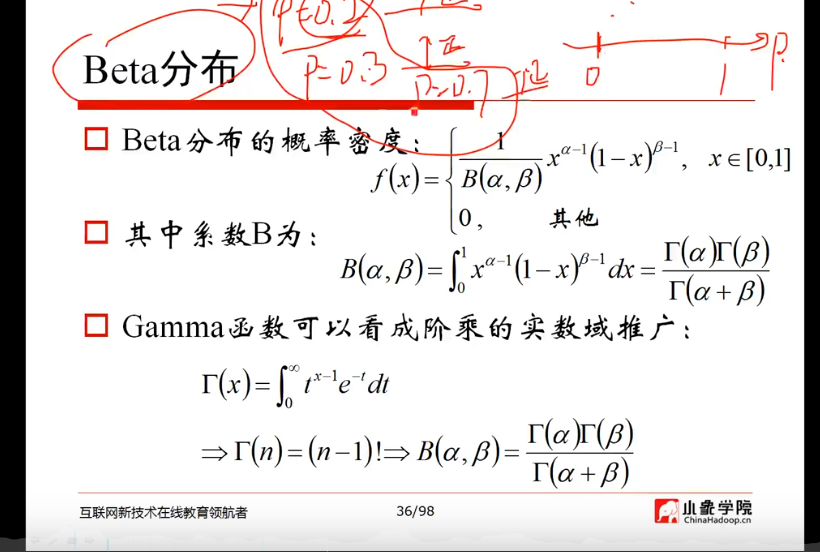 P=0.2
P=0.3
P=0.7
0 1 P
Beta分布
Beta分布的概率密度: f(x)={ 1/B(α,β) x^(α-1)(1-x)^(β-1), x∈[0,1]
0, 其他
其中系数B为:
B(α,β)=∫₀¹ x^(α-1)(1-x)^(β-1)dx=Γ(α)Γ(β)/Γ(α+β)
Gamma函数可以看成阶乘的实数域推广:
Γ(x)=∫₀^∞ t^(x-1)e^(-t)dt
⇒Γ(n)=(n-1)!⇒B(α,β)=Γ(α)Γ(β)/Γ(α+β)
互联网新技术在线教育领航者
36/98
小象学院
ChinaHadoop.cn